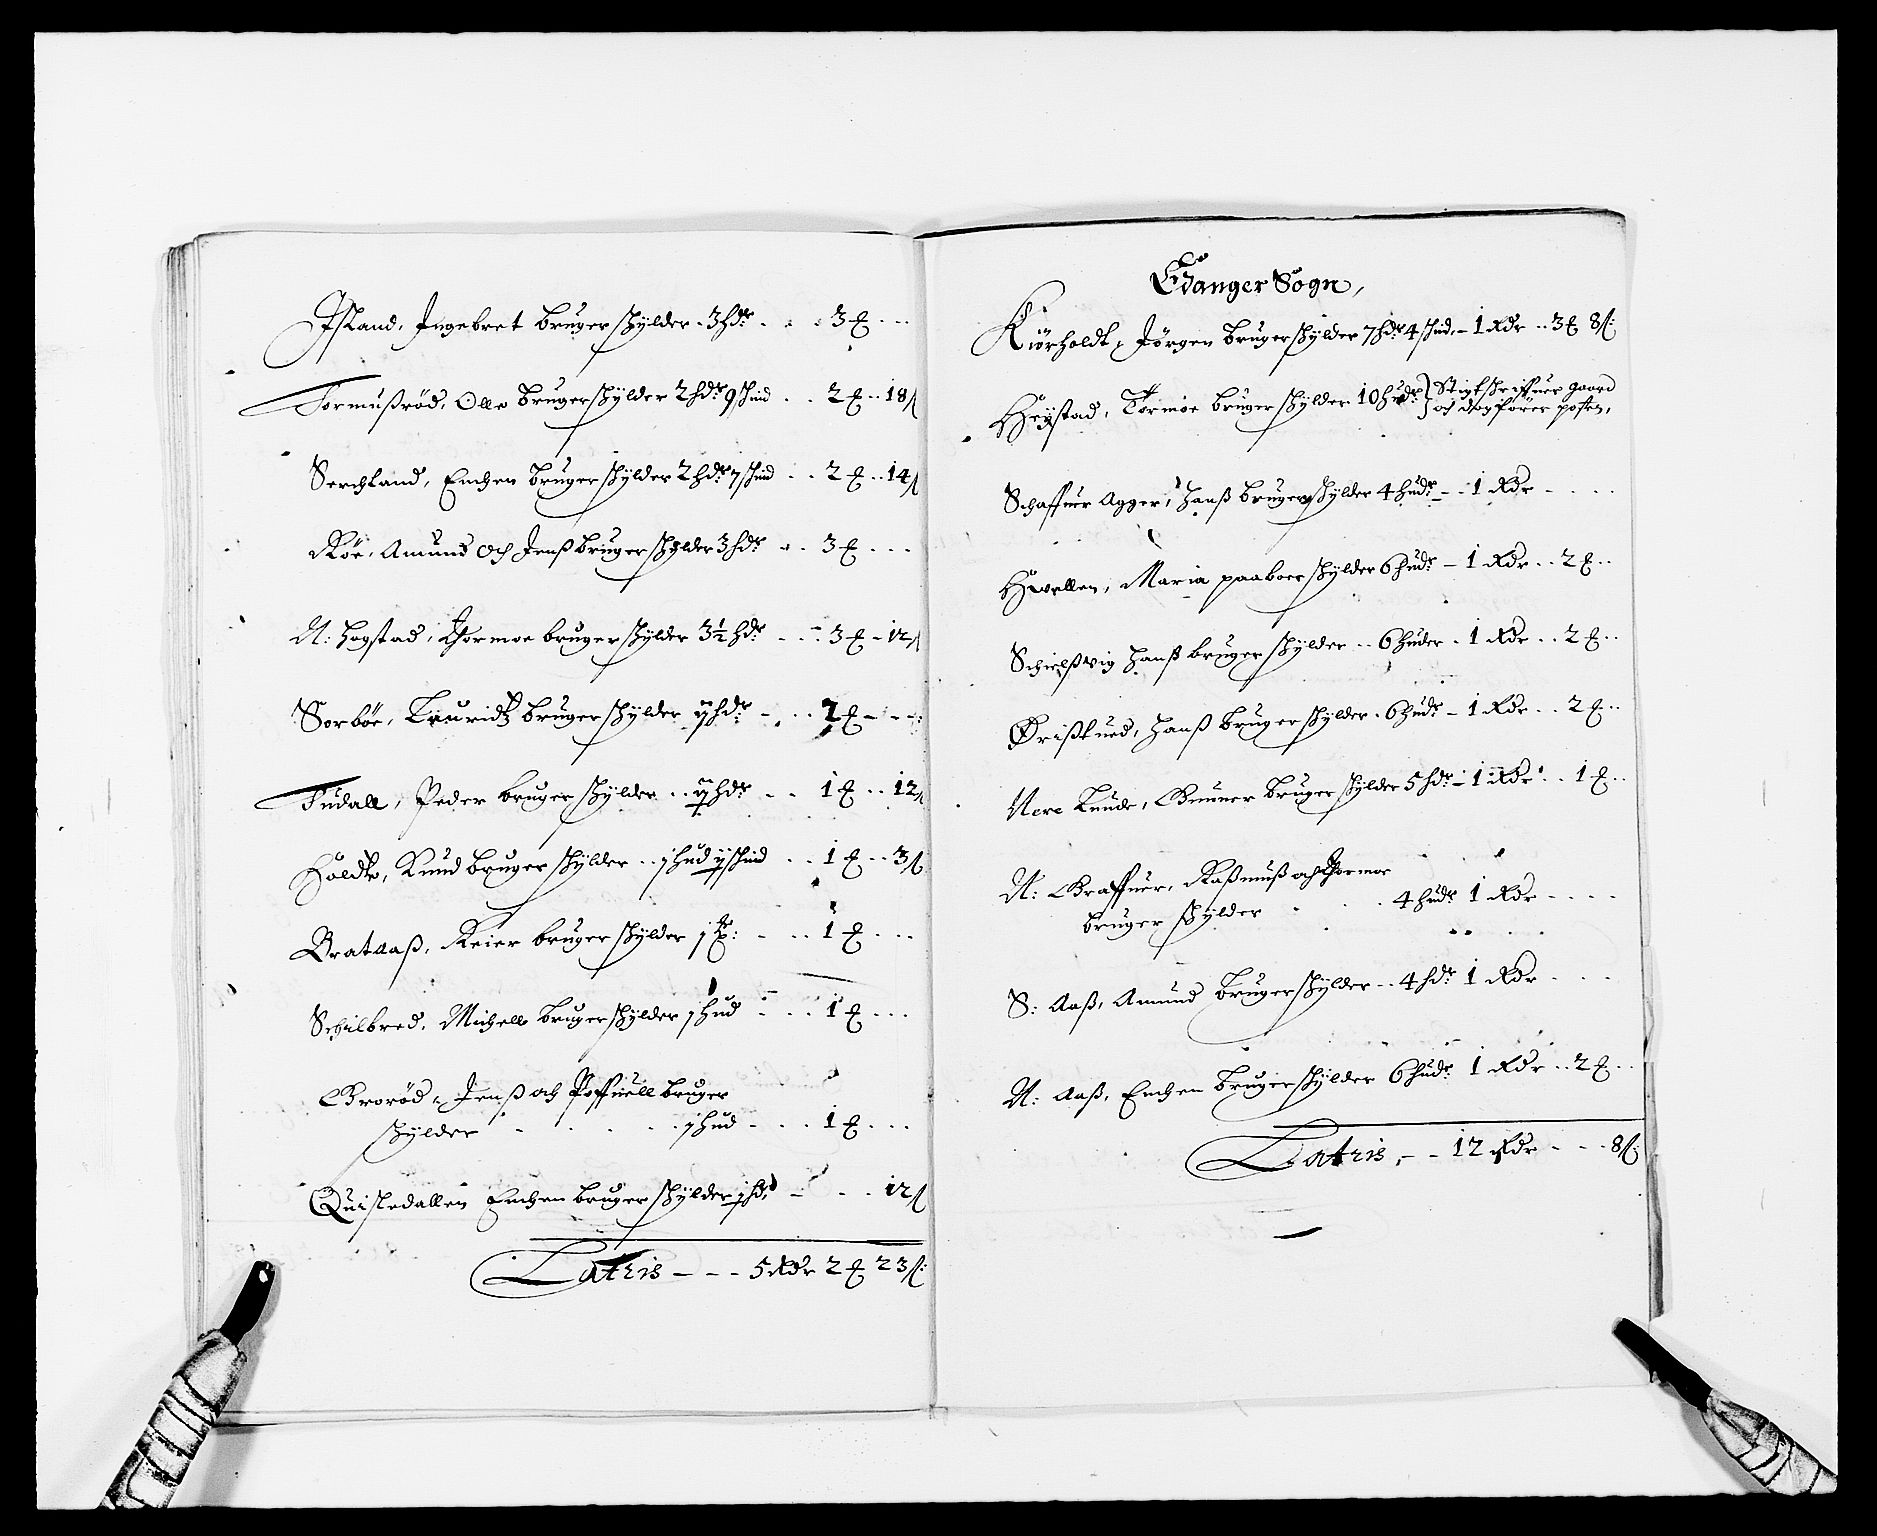 Istand, Ingebret bruger skylder - 3 hdr - - - 3 ℔ - - -
Tormußröd, Olle bruger skylder 2 hdr 9 skind - - 2 ℔ - - 18 ß
Serchland, Enchen bruger skylder 2 hdr 7 skind - - 2 ℔ - - 14 ß
Röe, Amund och Jenß bruger skylder 3 hdr - - 3 ℔ - - -
N: Hogstad, Thormoe bruger skylder 3½ hdr - - - 3 ℔ - 12 ß
Sorböe, Lauridtz bruger skylder ij hdr - - - 2 ℔ - - -
Tudall, Peder bruger skylder - - ij hdr - - 1 ℔ - - 12 ß
Holdte, Knud bruger skylder - - j hud ij skind - - 1 ℔ - - 3 ß
Brataaß, Reier bruger skylder j - - - 1 ℔ - - -
Schilbred, Michell bruger skylder j hud - - - 1 ℔ - - -
Groröd, Jenß och Poffuell bruger
skylder - - - - j hud - - - 1 ℔ - - -
Quistedallen Enchen bruger skylder j hd - - - 12 ß
Latris - - - 5 Rdr 2 ℔ 23 ß:
Edanger Sogn,
Kiörholdt, Jörgen bruger skylder 7 hdr 4 skind, - 1 Rdr - - 3 ℔ 8 ß:
Heystad, Tormoe bruger skylder 10 hudr } Stigtskriffuer gaard
och dragfører posten,
Schaffuer Agger, Hanß bruger skylder 4 hudr - - 1 Rdr - - - -
Hvallen, Maria paaboer skylder 6 hudr - 1 Rdr - - 2 ℔ - -
Schielßvig Hanß bruger skylder - - 6 huder - 1 Rdr - - 2 ℔ - -
Ørißtued, Hanß bruger skylder - 6 hudr - 1 Rdr - - 2 ℔ - -
Nere Lunde, Gunner bruger skylder 5 hdr - 1 Rdr - - 1 ℔ - -
N: Graffuer, Raßmuß och Thormoe
bruger skylder - - - 4 hudr 1 Rdr - - - -
S: Aaß, Amund bruger skylder - - 4 hdr 1 Rdr - - -
N: Aaß, Enchen bruger skylder 6 hudr 1 Rdr - - 2 ℔ - -
Latris, - - 12 Rdr - - - 8 ß: